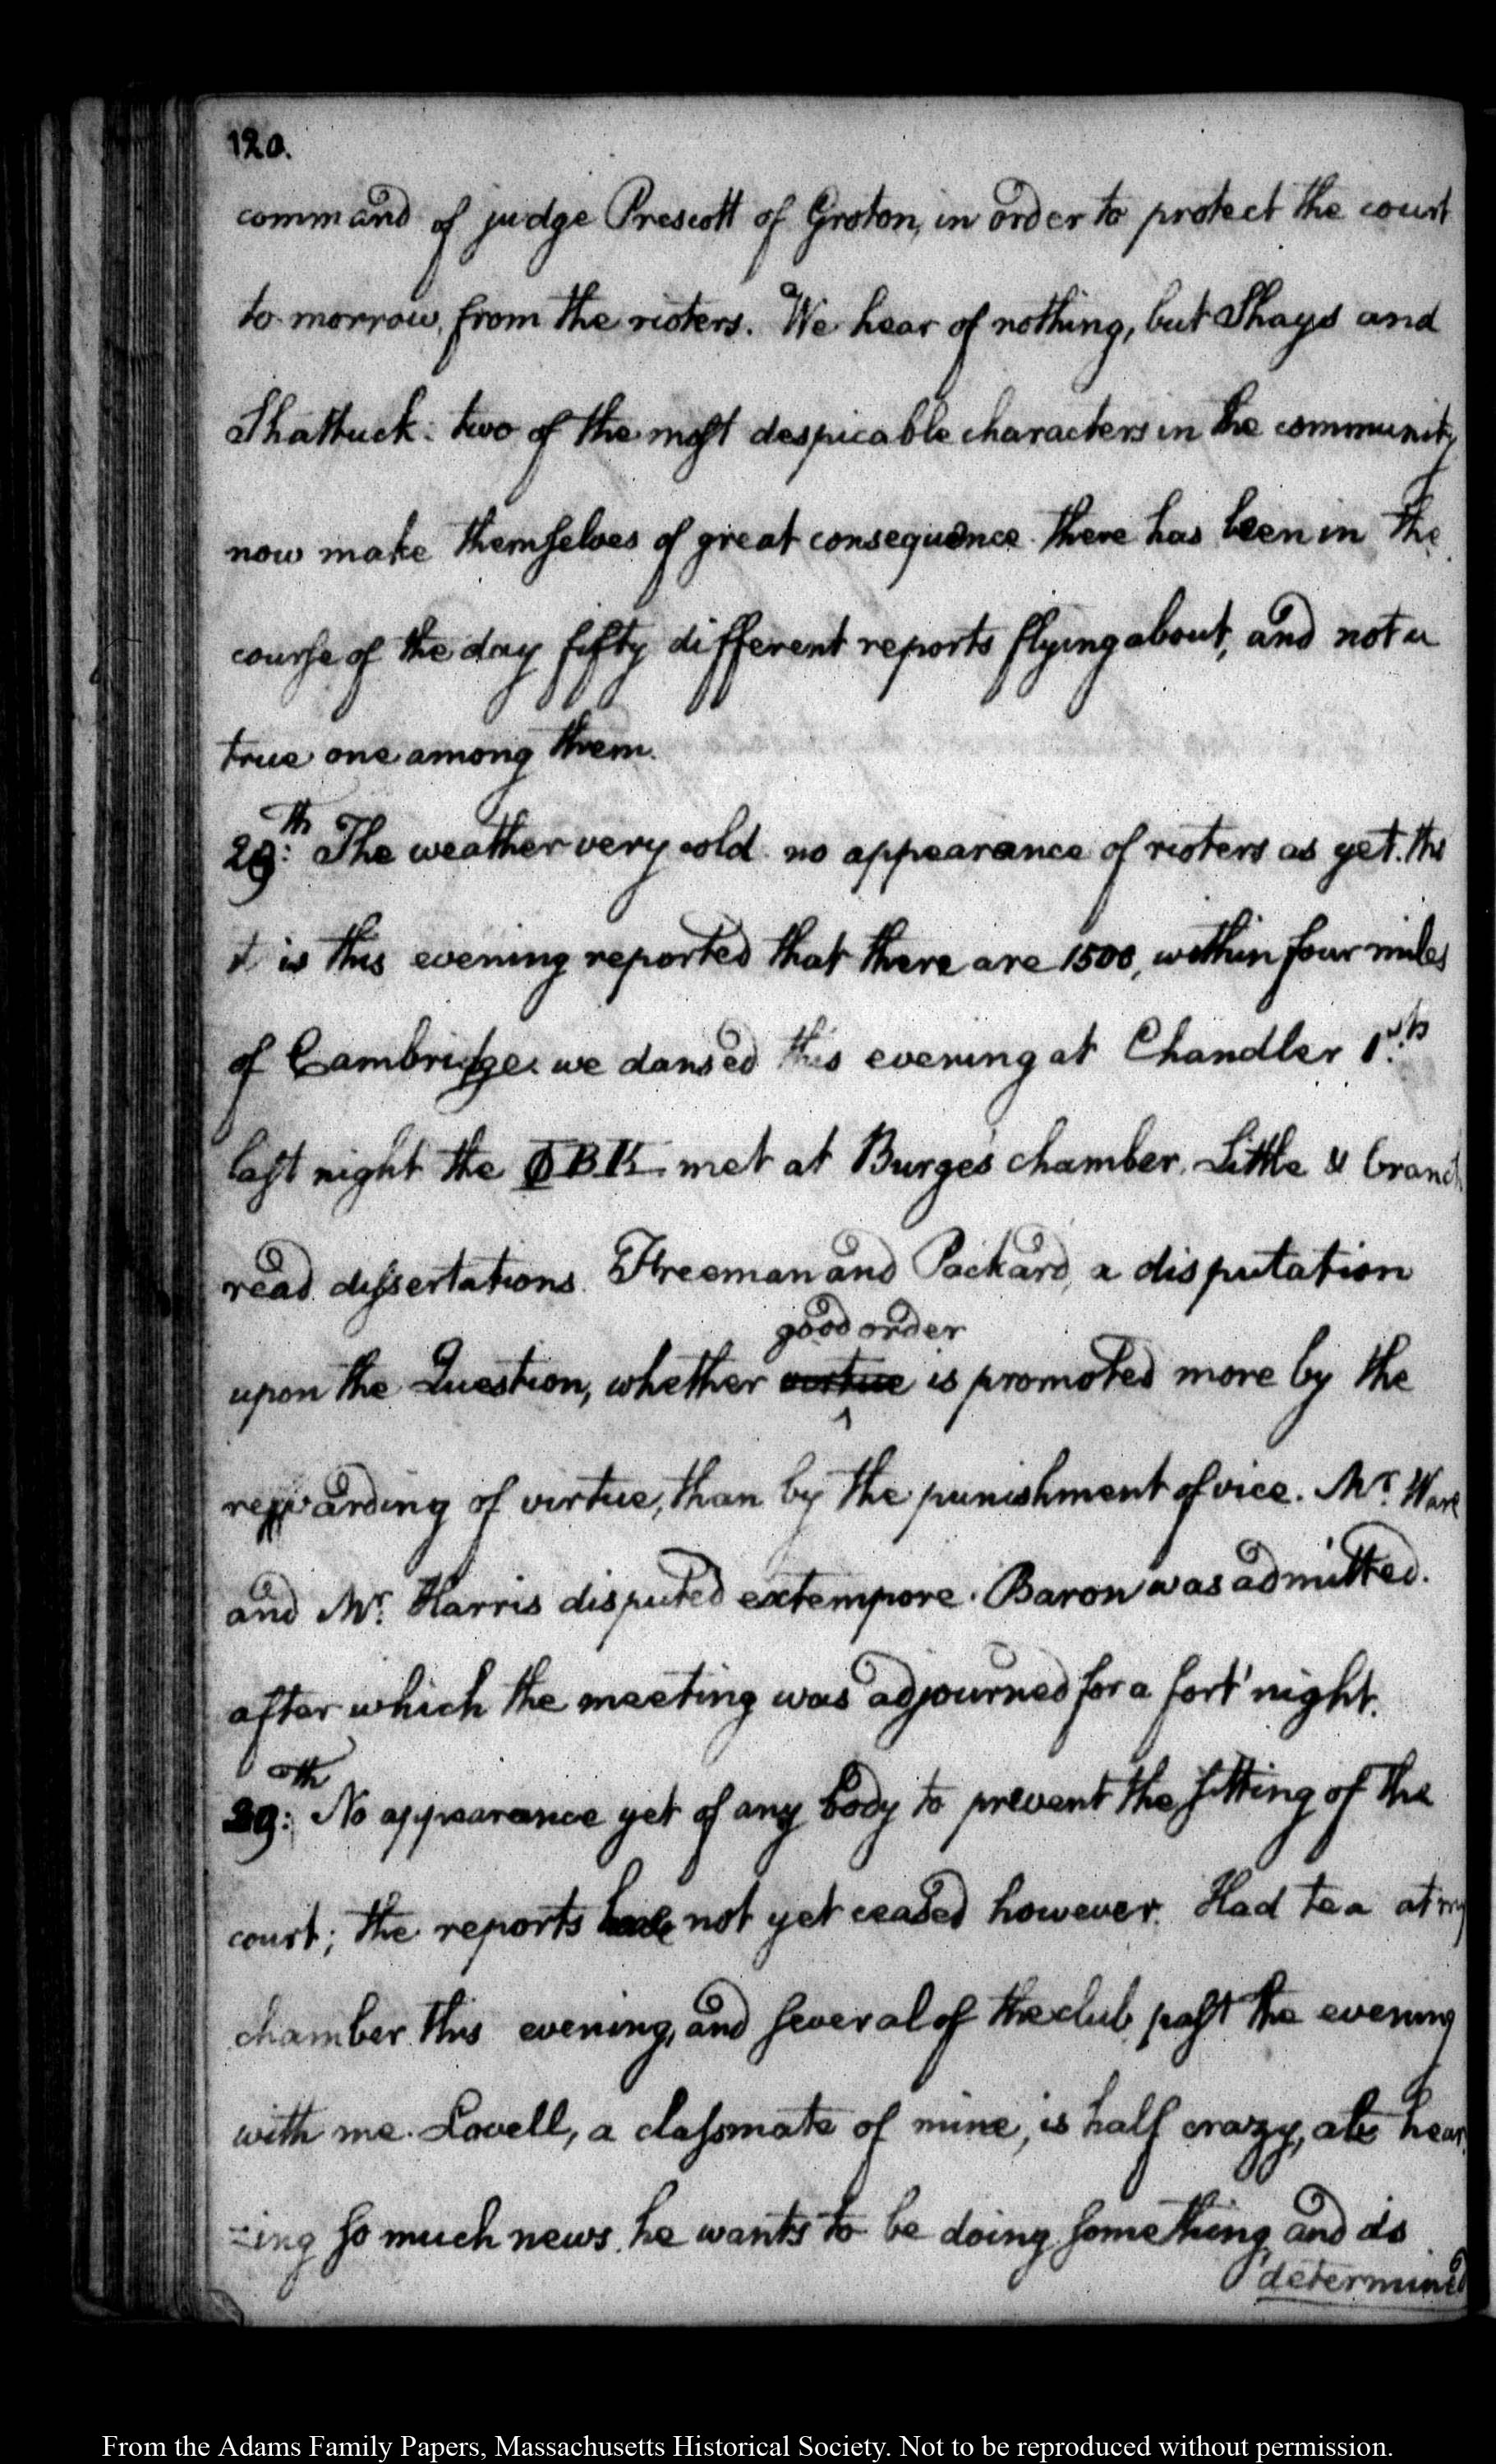 120.
command of judge Prescott of Groton, in order to protect the court
to morrow, from the rioters. We hear of nothing, but Shays and
Shattuck: two of the most despicable characters in the community
now make themselves of great consequence. there has been in the
course of the day fifty different reports flying about, and not a
true one among them.
28th: The weather very cold. no appearance of rioters as yet. tho
it is this evening reported that there are 1500, within four miles
of Cambridge. we dansed this evening at Chandler 1sts
last night the ΦBK met at Burge's chamber. Little & Cranch
read dissertations. Freeman and Packard, a disputation
good order
upon the Question, whether virtue is promoted more by the
rewarding of virtue, than by the punishment of vice. Mr. Ware
and Mr. Harris disputed extempore. Baron was admitted.
after which the meeting was adjourned for a fort'night.
29th: No appearance yet of any body to prevent the sitting of the
court; the reports have not yet ceased however. Had tea at my
chamber this evening, and several of the club past the evening
with me. Lovell, a classmate of mine, is half crazy, at hear
-ing so much news. he wants to be doing something, and is
determined
From the Adams Family Papers, Massachusetts Historical Society. Not to be reproduced without permission.